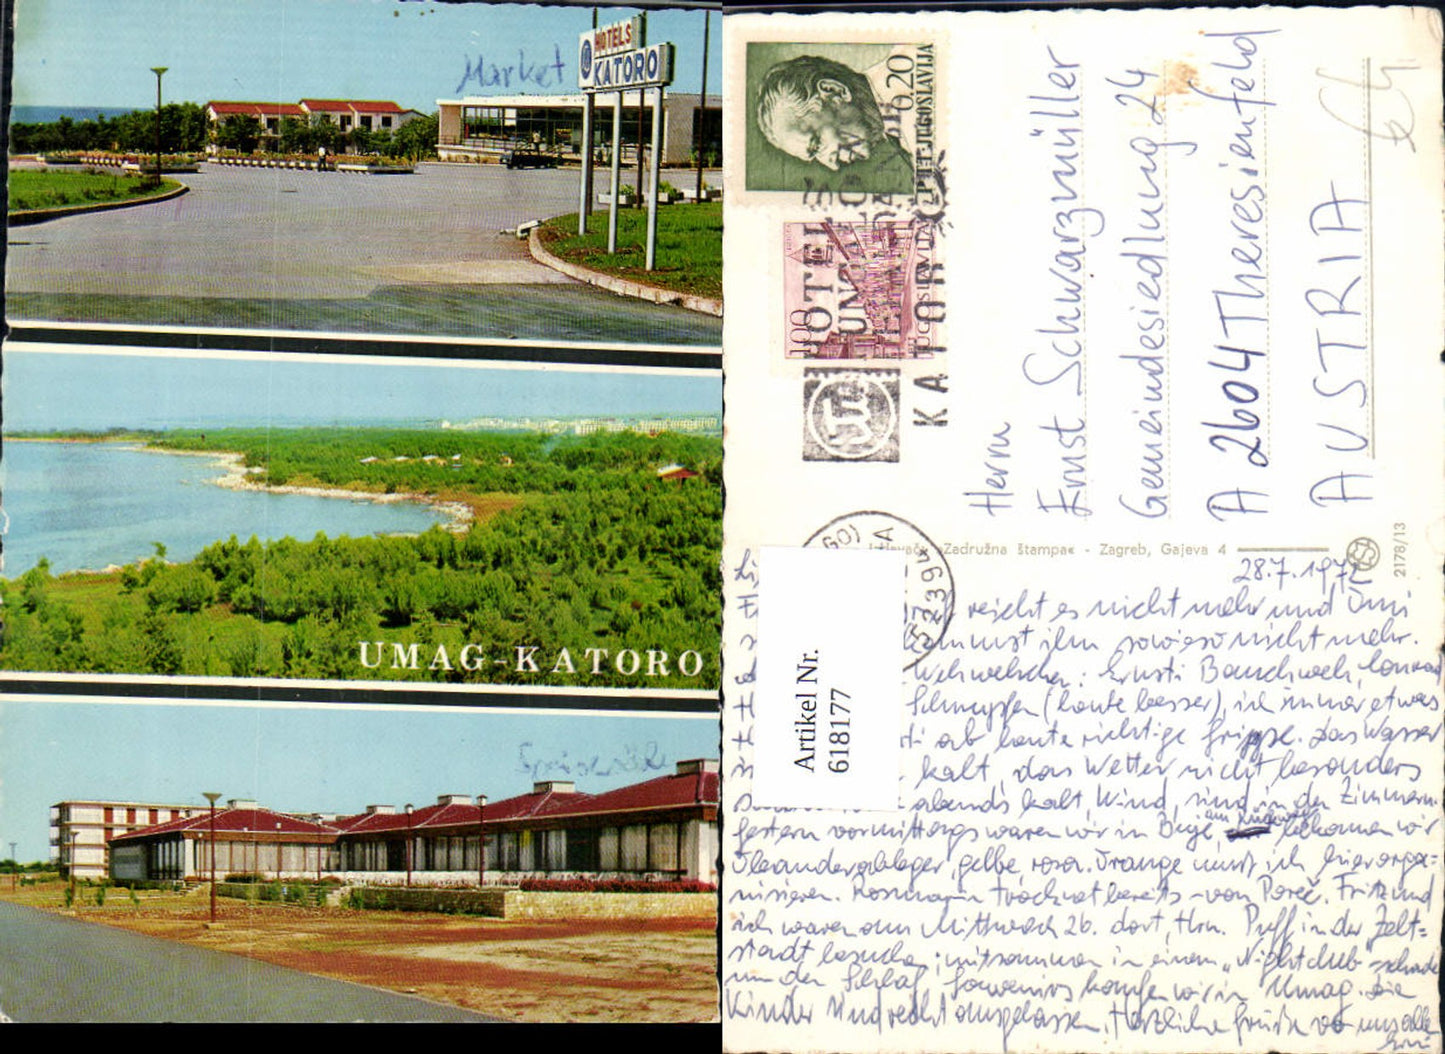 Market
HOTELS
KATORO
UMAG-KATORO
0.20
PTT JUGOSLAVIJA
100
JUGOSLAVIJA
HOTELI
KATORO
Herrn
Ernst Schwarzmüller
Gemeindesiedlung 24
A 2604 Theresienfeld
AUSTRIA
64
»Zadružna štampa« - Zagreb, Gajeva 4
2178/13
52394
Artikel Nr.
618177
28.7.1972
reicht es nicht mehr und Omi
kommt ihm sowieso nicht mehr.
Wehwehchen: Ernsti Bauchweh, Konrad
Schnupfen (heute besser), ich immer etwas
ab heute richtige Grippe. Das Wasser
kalt, das Wetter nicht besonders
abends kalt, Wind, sind in den Zimmern.
Gestern vormittags waren wir in Buje, bekamen wir
Oleanderableger, gelbe, rosa. Orange muß ich hier orga=
nisieren. Rosmarin trocknet bereits - von Poreč. Fritz und
ich waren am Mittwoch 26. dort, Hrn. Puff in der Zelt=
stadt besuchen; mitsammen in einem „Nightclub" - schade
um den Schlaf. Souvenirs kaufen wir in Umag. Die
Kinder sind recht ausgelassen. Herzliche Grüße von uns allen